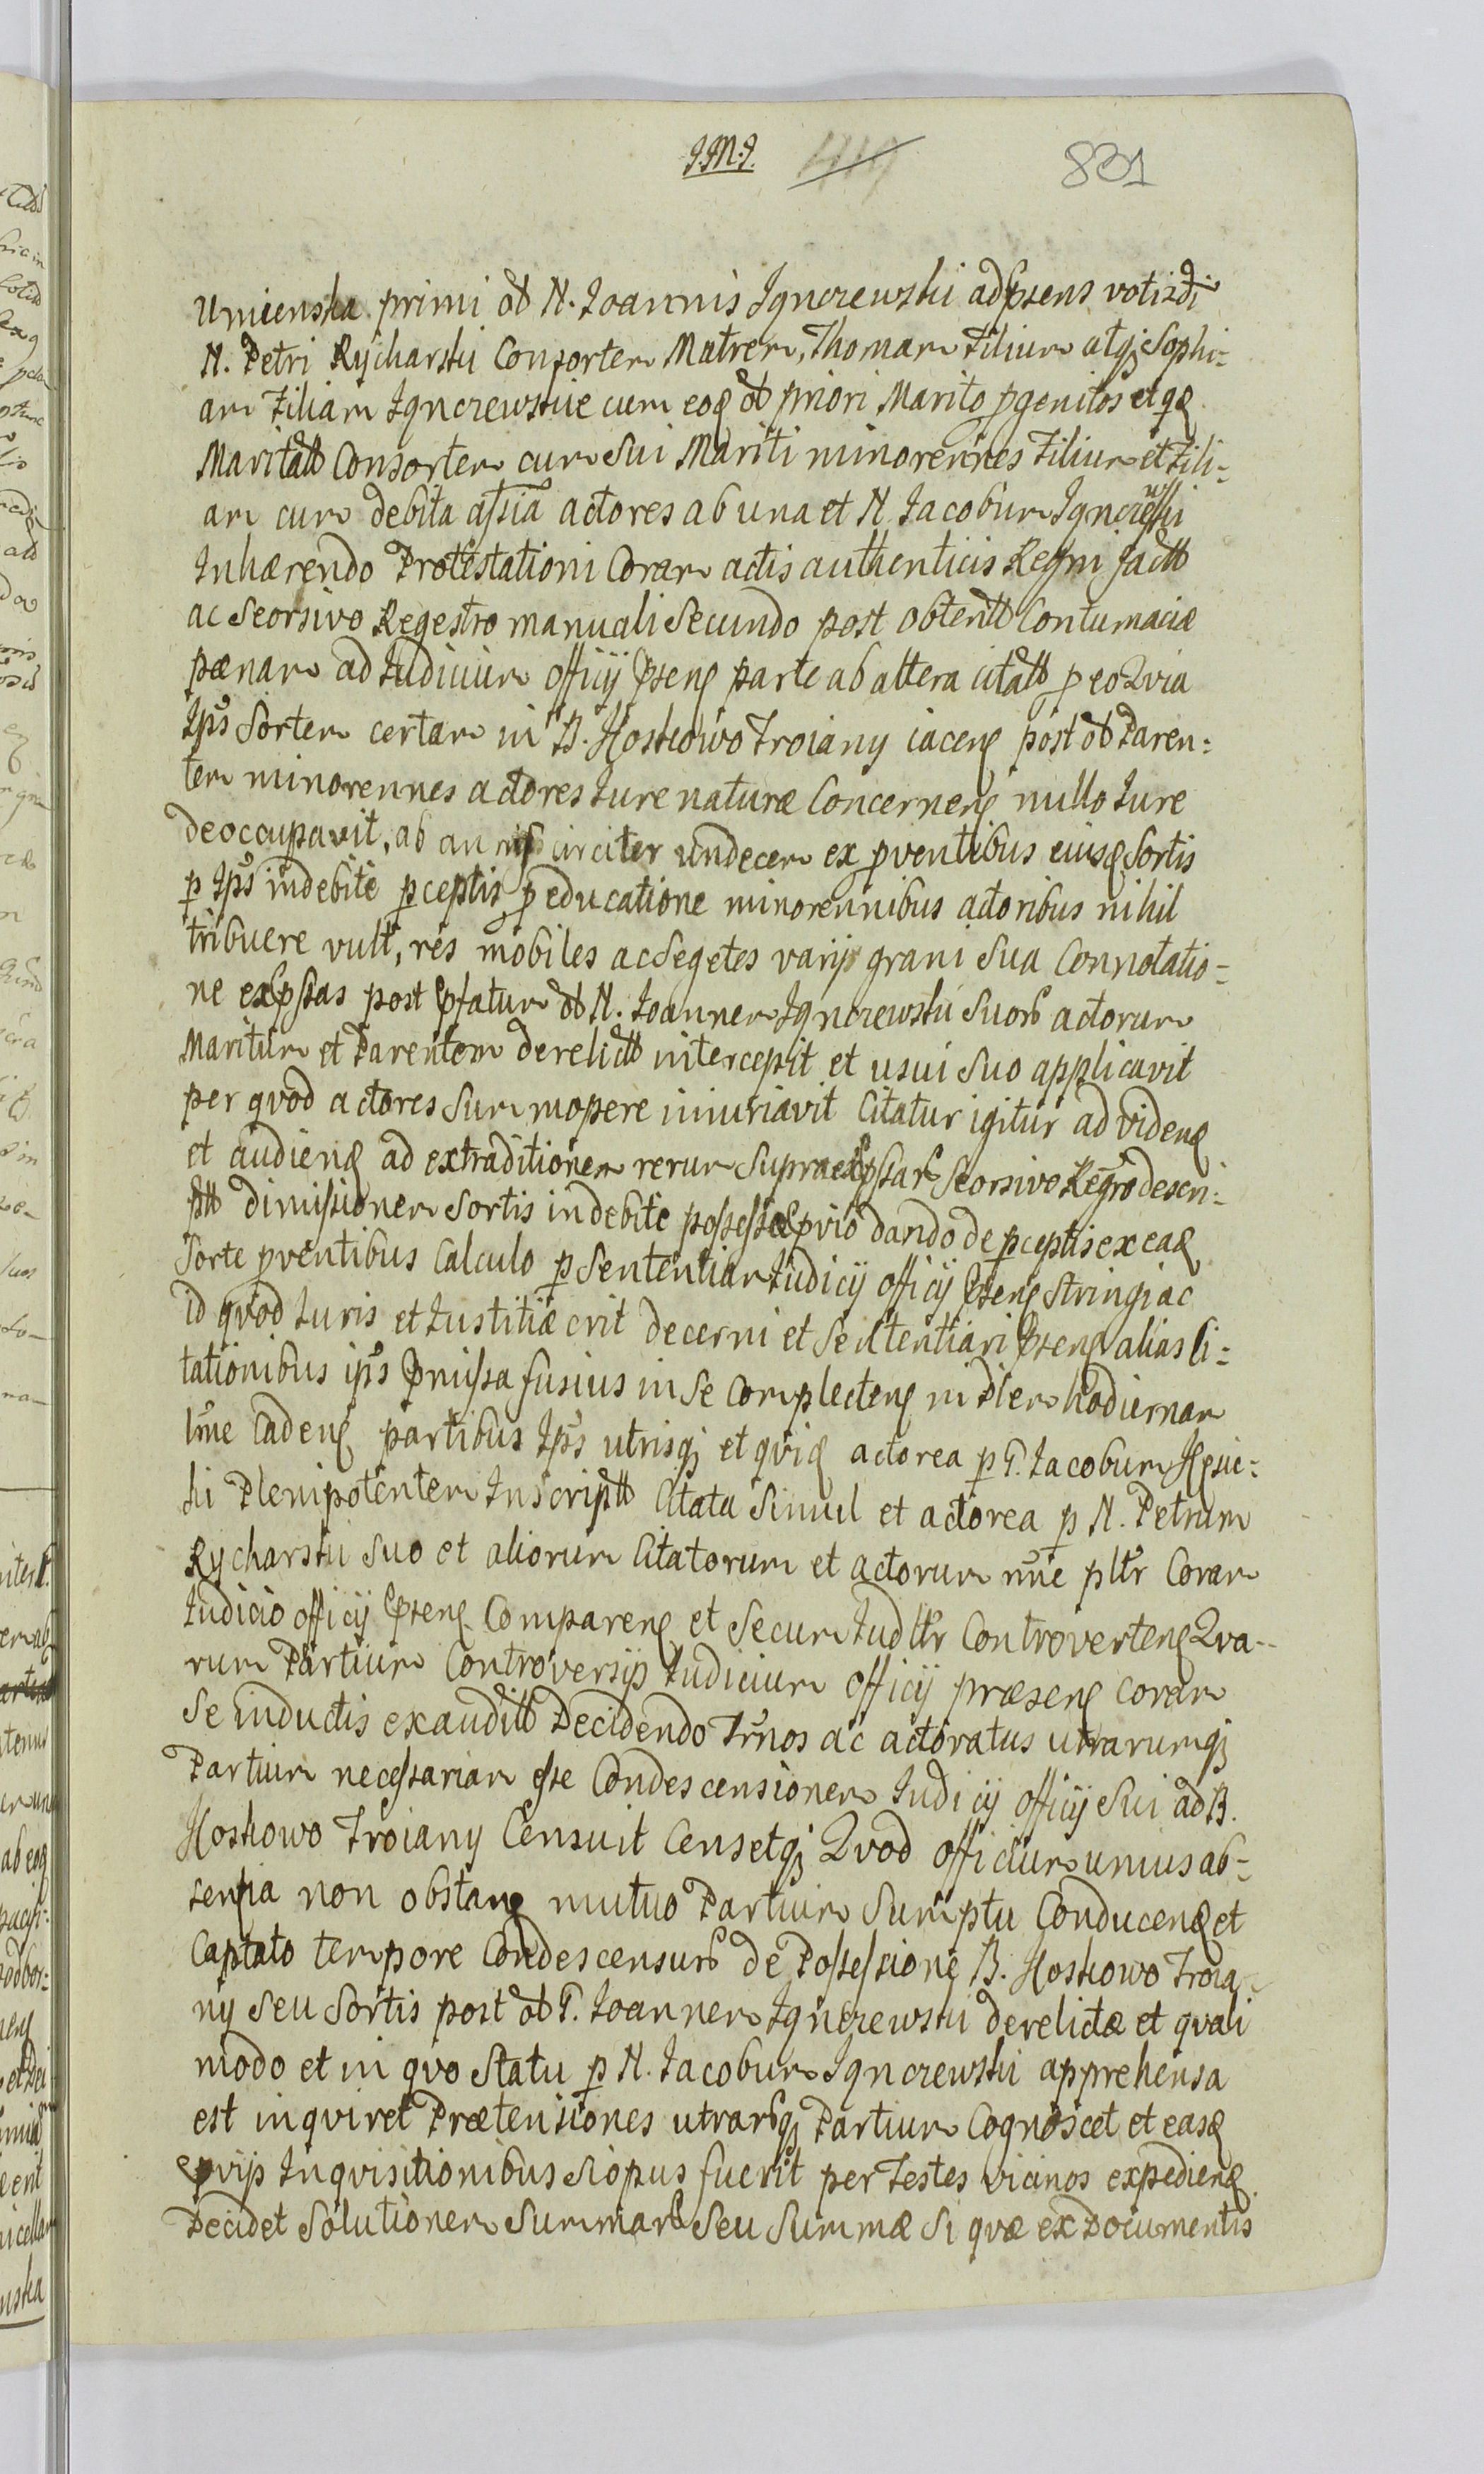 J.M.J. 419 831
Umienska primi olim N. Joannis Jgnczewski ad psens voti 2di
N. Petri Rycharski Consortem Matrem, Thomam Filium atq Sophi=
am Filiam Jgnczewskie cum eoq olim priori Marito pgenitos et qq
Maritali Consortem cum Sui Mariti minorennes Filium et Fili=
am cum debita assia actores ab una et N. Jacobum Jgnczewski
Inhærendo Protestationi Coram actis authenticis Regni factt
ac Seorsivo Regestro manuali Secundo post obtentt Contumaciæ
pænam ad Iudicium officij psens parte ab altera citatt p eo Qvia
Ips Sortem certam in B. Hoskowo Troiany iacens post olim Paren=
tem minorennes actores Iure naturæ Concernens nullo Iure
deoccupavit, ab annis circiter undecem ex pventibus eiusq Sortis
p Ips indebite pceptis p educatione minorennibus actoribus nihil
tribuere vult, res mobiles ac Segetes varij grani Sua Connotatio=
ne expssas post pfatum olim N. Joannem Jgnczewski Suorum actorum
Maritum et Parentem derelictt intercepit et usui Suo applicavit
per qvod actores Summopere iniuriavit Citatur igitur ad videnq
et audienq ad extraditionem rerum Supra expssarum Seorsivo Regro descri=
ptt dimissionem Sortis indebite possessæ pvio dando de pceptis ex eaq
Sorte pventibus Calculo p Sententiam Iudicij officij psens Stringi ac
id qvod Iuris et Iustitiæ erit decerni et Sententiari psens alias Ci=
tationibus ips pmissa fusius in Se Complectens in Diem hodiernam
lme Cadens partibus Ips utrisq et qviq actorea p G. Jacobum
ki Plenipotentem Inscriptt Citata Simul et actorea p N. Petrum
Rycharski Suo et aliorum Citatorum et actorum nne pltr Coram
Iudicio officij psens Comparens et Secum Iudltr Controvertens Qva=
rum Partium Controversijs Iudicium officij præsens coram
Se inductis exauditt Decidendo Trnos ac actoratus utrarumq
Partium necessariam esse Condescensionem Iudicij officij Sui ad B.
Hoskowo Troiany Censuit Censetq Qvod officium unius ab=
sentia non obstans mutuo Partium Sumptu Conducenq et
Captato tempore Condescensurum de Possessione B. Hoskowo Troia=
ny Seu Sortis post olim G. Joannem Jgnczewski derelictæ et qvali
modo et in qvo Statu p N. Jacobum Jgnczewski apprehensa
est inqviret Prætensiones utrarumq Partium Cognoscet et easq
pvijs Inqvisitionibus Si opus fuerit per Testes vicinos expedienq
Decidet Solutionem Summarum Seu Summæ Si qvæ ex Documentis